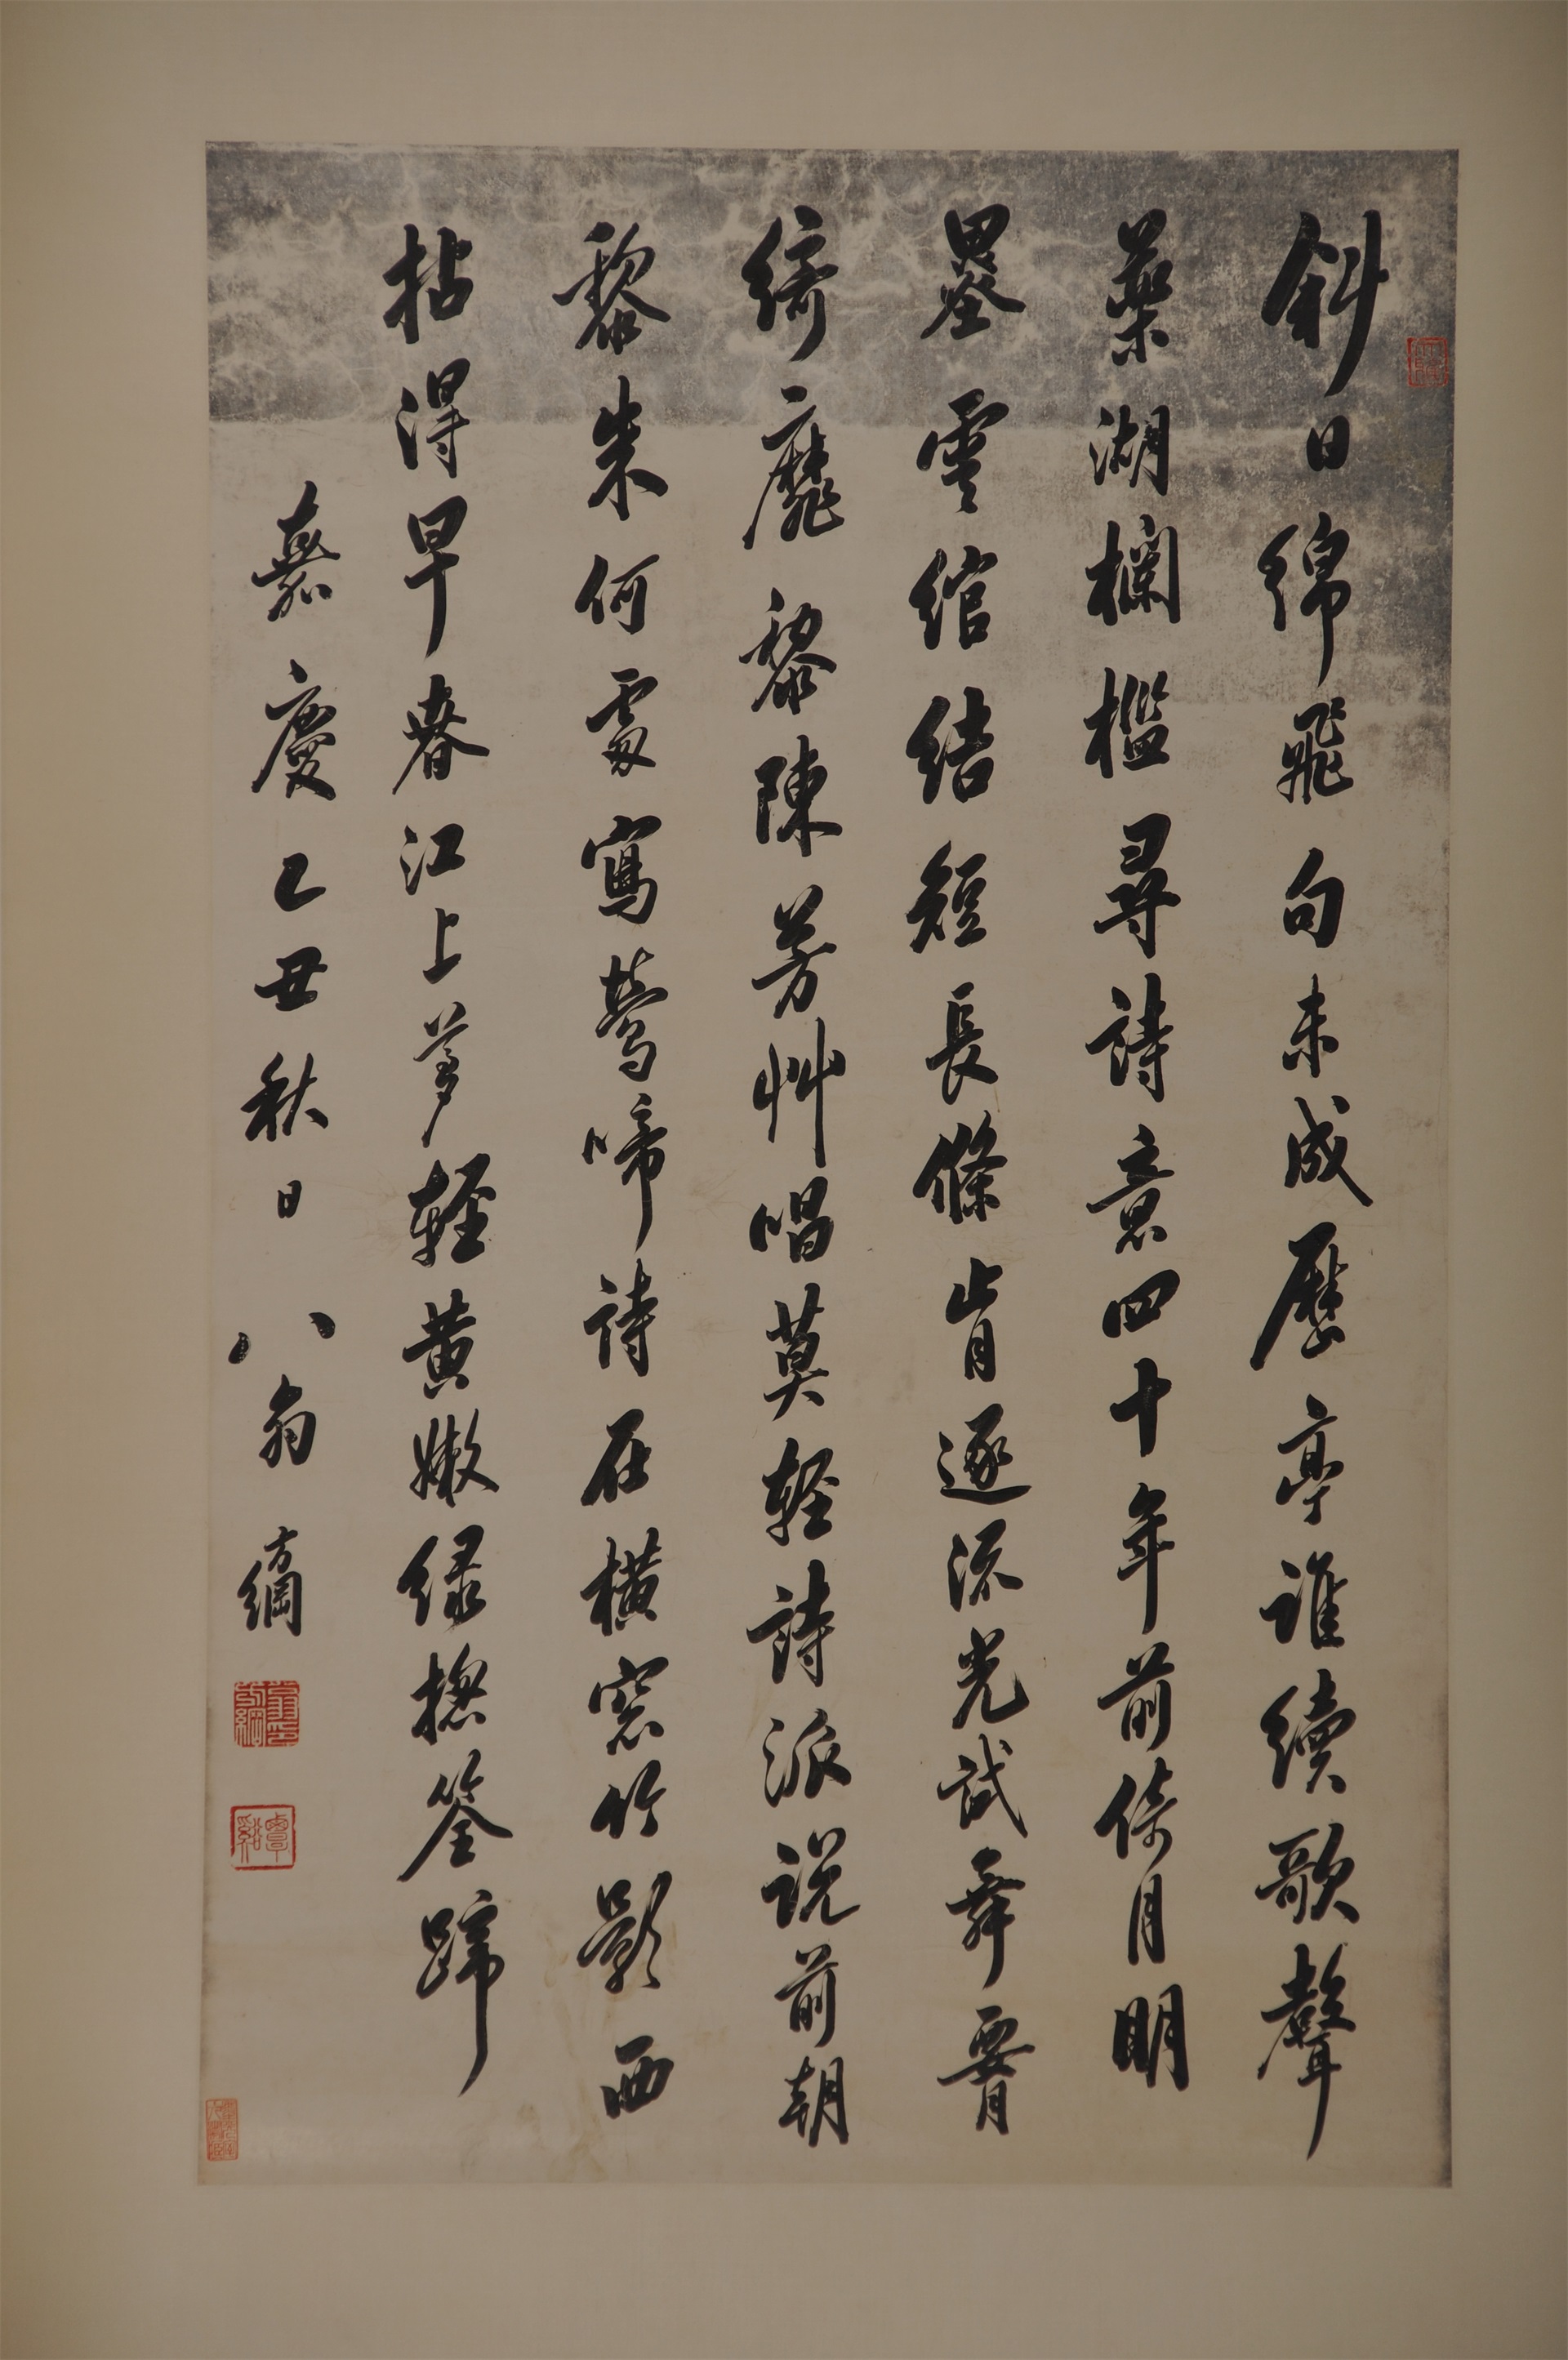 斜日綿飛句未成歷亭誰續歌聲
藥湖欄檻尋詩意四十年前倚月明
墨雲綰結短長條肯逐流光試舞腰
綺靡黎陳芳艸唱莫輕詩派說前朝
黎朱何處寫鶯啼詩在橫窓竹影西
拈得早春江上夢輕黃嫩綠摠筌蹄
嘉慶乙丑秋日八翁方綱
翁方綱印
覃谿